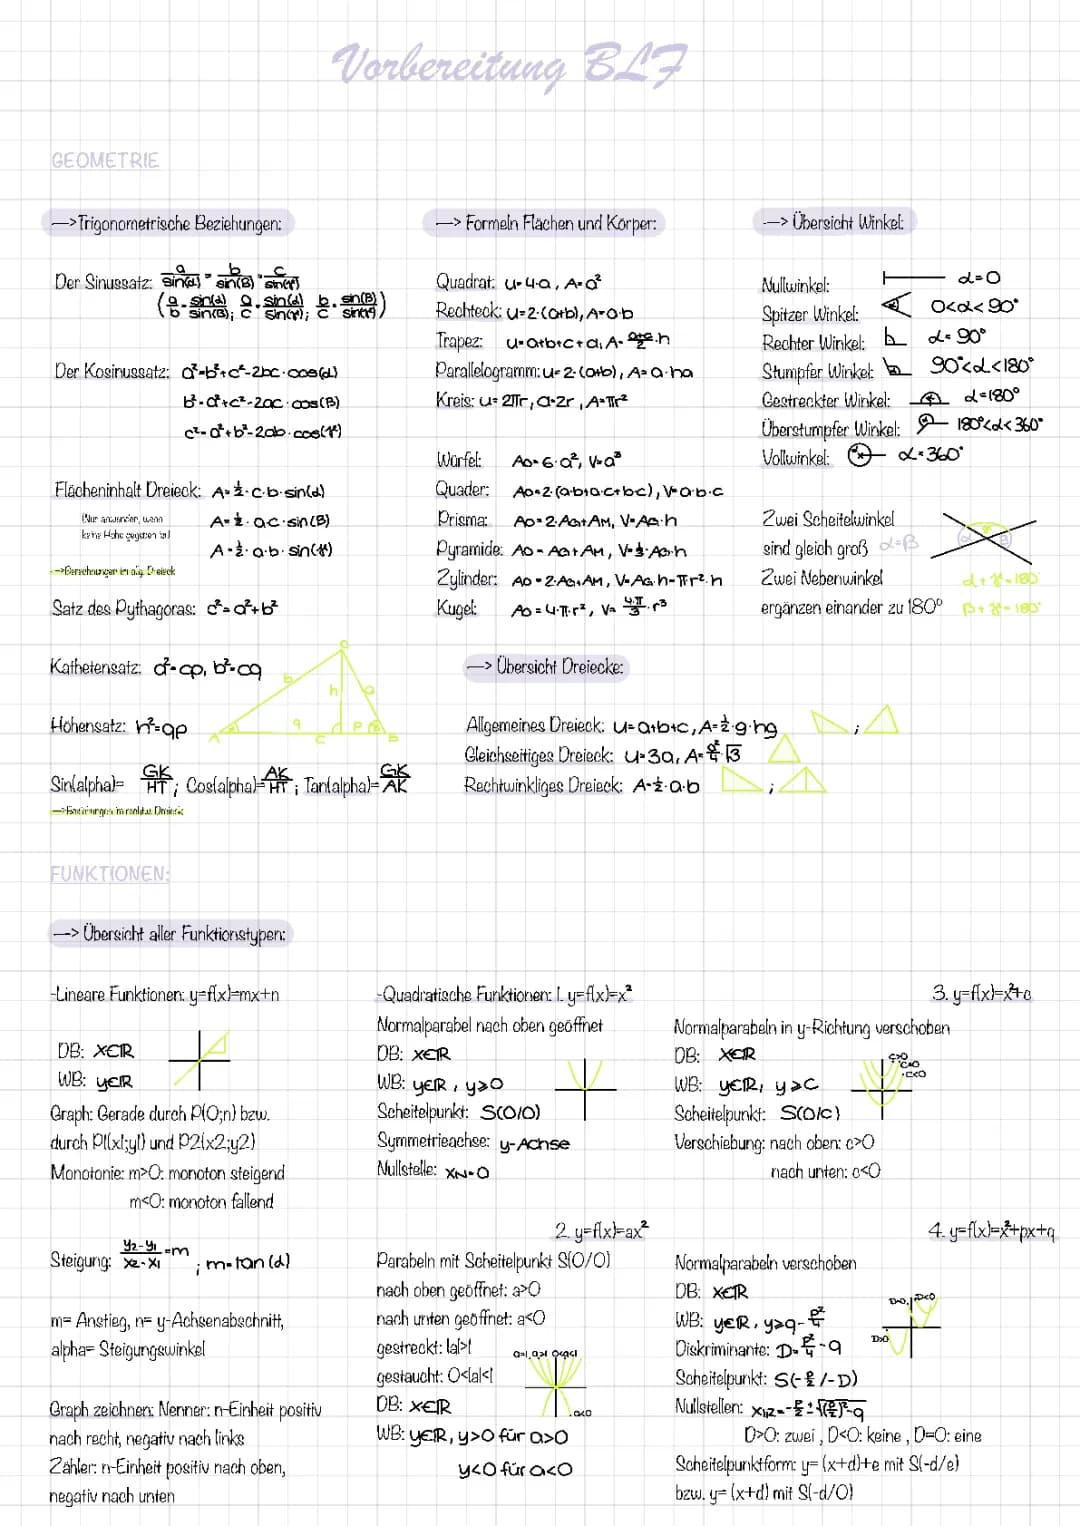 Vorbereitung BLF
GEOMETRIE
—> Trigonometrische Beziehungen:
Der Sinussatz: a/sin(α) = b/sin(β) = c/sin(γ)
(a/b = sin(α)/sin(β); a/c = sin(α)/sin(γ); b/c = sin(β)/sin(γ))
Der Kosinussatz: a²=b²+c²-2bc·cos(α)
b²=a²+c²-2ac·cos(β)
c²=a²+b²-2ab·cos(γ)
Flächeninhalt Dreieck: A=½·c·b·sin(α)
(Nur anwenden, wenn
keine Höhe gegeben ist)
A=½·a·c·sin(β)
A=½·a·b·sin(γ)
—>Berechnungen im allg. Dreieck
Satz des Pythagoras: c²=a²+b²
Kathetensatz: a²=cp, b²=cq
Höhensatz: h²=qp
C
b
h
a
q
p
A
c
B
Sin(alpha)= GK/HT ; Cos(alpha)= AK/HT ; Tan(alpha)= GK/AK
—> Formeln Flächen und Körper:
Quadrat: u=4·a, A=a²
Rechteck: u=2·(a+b), A=a·b
Trapez: u=a+b+c+d, A=a+c/2·h
Parallelogramm: u=2·(a+b), A=a·ha
Kreis: u=2πr, d=2r, A=πr²
Würfel: Ao=6·a², V=a³
Quader: Ao=2·(a·b+a·c+bc), V=a·b·c
Prisma: Ao=2·AG+AM, V=AG·h
Pyramide: Ao=AG+AM, V=⅓·AG·h
Zylinder: Ao=2·AG+AM, V=AG·h=πr²·h
Kugel: Ao=4·π·r², V=4·π/3·r³
—> Übersicht Dreiecke:
Allgemeines Dreieck: u=a+b+c, A=½·g·hg ;
Gleichseitiges Dreieck: u=3a, A=a²/4·√3
Rechtwinkliges Dreieck: A=½·a·b ;
—> Übersicht Winkel:
Nullwinkel: α=0
Spitzer Winkel: 0<α<90°
Rechter Winkel: α=90°
Stumpfer Winkel: 90°<α<180°
Gestreckter Winkel: α=180°
Überstumpfer Winkel: 180°<α<360°
Vollwinkel: α=360°
Zwei Scheitelwinkel
sind gleich groß α=β
Zwei Nebenwinkel α+γ=180°
ergänzen einander zu 180° β+γ=180°
FUNKTIONEN:
—> Übersicht aller Funktionstypen:
-Lineare Funktionen: y=f(x)=mx+n
DB: x∈ℝ
WB: y∈ℝ
Graph: Gerade durch P(0;n) bzw.
durch P1(x1;y1) und P2(x2;y2)
Monotonie: m>0: monoton steigend
m<0: monoton fallend
Steigung: y₂-y₁/x₂-x₁=m ; m=tan(α)
m= Anstieg, n= y-Achsenabschnitt,
alpha= Steigungswinkel
Graph zeichnen: Nenner: n-Einheit positiv
nach recht, negativ nach links
Zähler: n-Einheit positiv nach oben,
negativ nach unten
-Quadratische Funktionen: 1. y=f(x)=x²
Normalparabel nach oben geöffnet
DB: x∈ℝ
WB: y∈ℝ, y≥0
Scheitelpunkt: S(0/0)
Symmetrieachse: y-Achse
Nullstelle: xN=0
2. y=f(x)=ax²
Parabeln mit Scheitelpunkt S(0/0)
nach oben geöffnet: a>0
nach unten geöffnet: a<0
gestreckt: |a|>1
gestaucht: 0<|a|<1
a=1, a>1 0<a<1
DB: x∈ℝ
a<0
WB: y∈ℝ, y>0 für a>0
y<0 für a<0
3. y=f(x)=x²+c
Normalparabeln in y-Richtung verschoben
DB: x∈ℝ
WB: y∈ℝ, y≥c
c>0
c=0
c<0
Scheitelpunkt: S(0/c)
Verschiebung: nach oben: c>0
nach unten: c<0
4. y=f(x)=x²+px+q
Normalparabeln verschoben
DB: x∈ℝ
WB: y∈ℝ, y≥q-p²/4
Diskriminante: D=p²/4-q
D=0, D<0
D>0
Scheitelpunkt: S(-p/2/-D)
Nullstellen: x1/2=-p/2±√(p/2)²-q
D>0: zwei , D<0: keine , D=0: eine
Scheitelpunktform: y= (x+d)+e mit S(-d/e)
bzw. y= (x+d) mit S(-d/0)